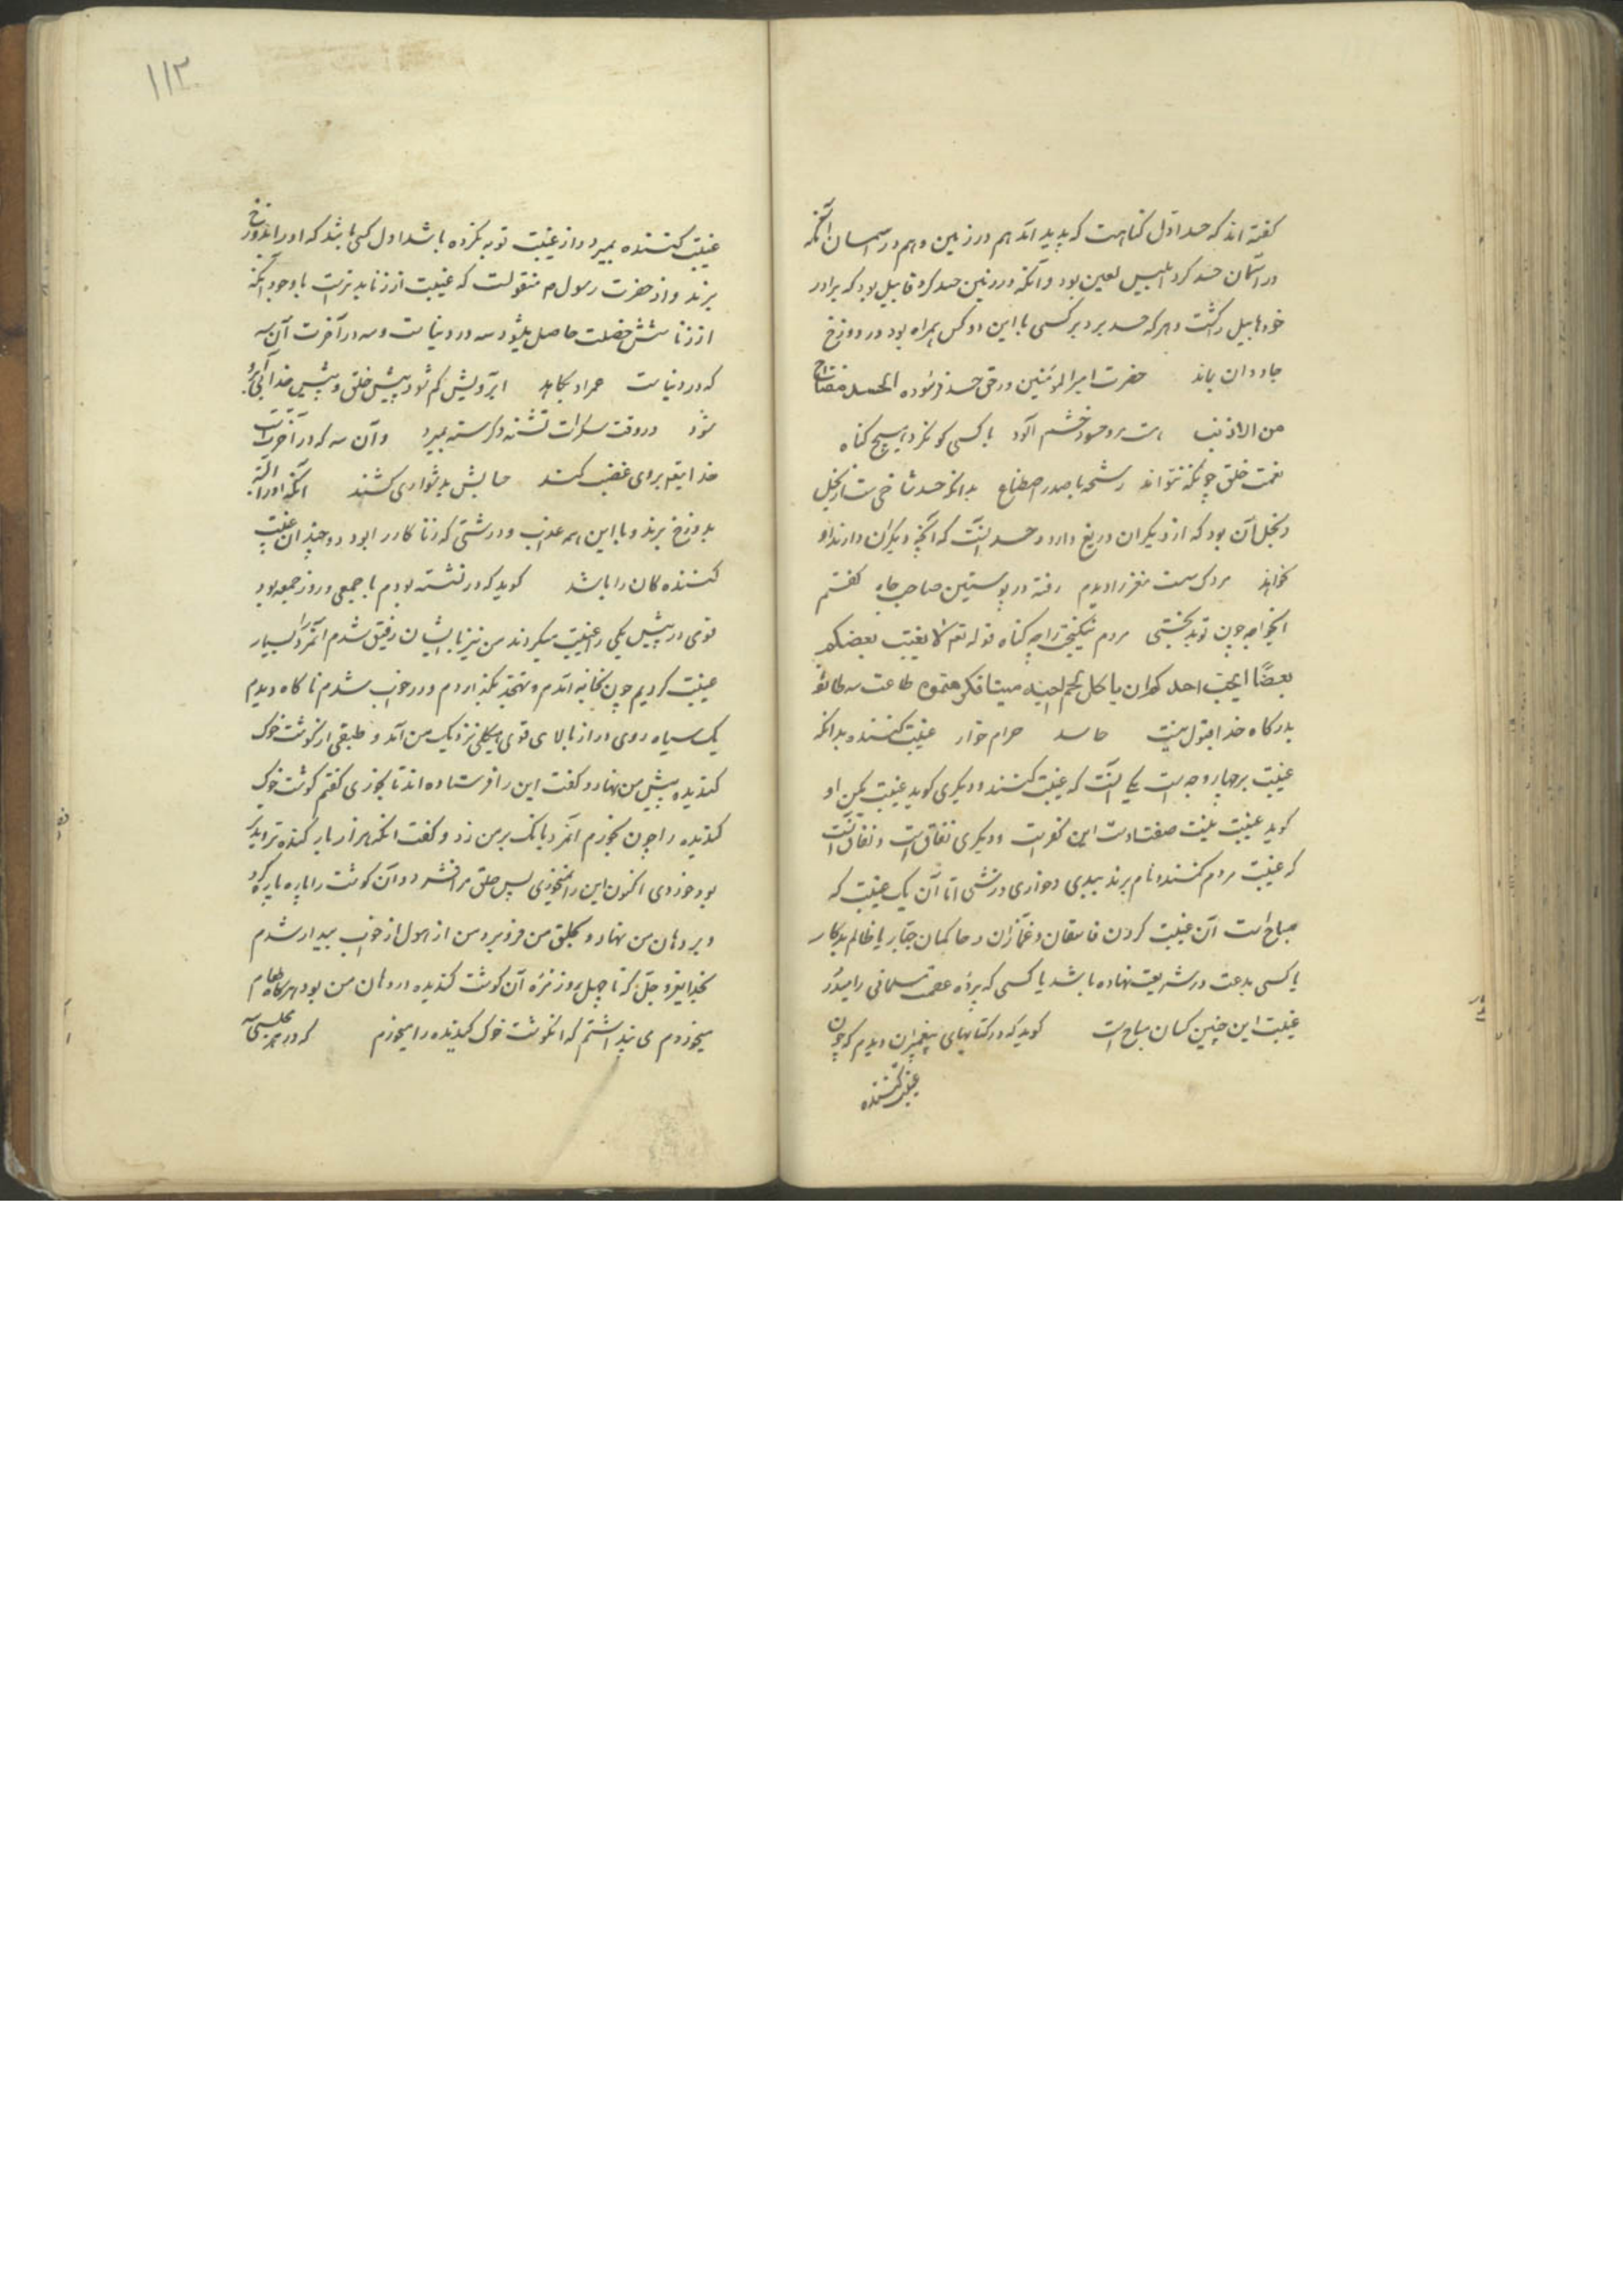 گفته اند که حسد اول گناهست که پدید آمد هم در زمین و هم در آسمان آنکه
در آسمان حسد کرد ابلیس لعین بود و آنکه در زمین حسد کرد قابیل بود که برادر
خود هابیل را کشت و هر که حسد برد بر کسی با این دو کس همراه بود در دوزخ
جاودان بماند حضرت امیرالمؤمنین در حق حسد فرموده الحسد
من الاذنب است مرد حسود خشم آلود با کسی کو نکرد هیچ گناه
نعمت خلق چونکه نتواند بدانکه حسد شاخی است از بخل
و بخل آن بود که از دیگران دریغ دارد و حسد آنست که آنچه دیگران دارند او
نخواهد مردک سست مغز را دیدم رفته در پوستین صاحب جاه گفتم
ایخواجه چون تو بدبختی مردم نیکبخت را چه گناه قوله تع لا یغتب بعضکم
بعضا ایحب احدکم ان یاکل لحم اخیه میتا فکرهتموه طاعت سه طائفه
بدرگاه خدا قبول نیست حاسد حرام خوار غیبت کننده بدانکه
غیبت بر چهار وجه است یکی آنست که غیبت کنند و دیگری گوید غیبت مکن او
گوید غیبت نیست این کفر است و دیگری نفاق است و نفاق آنست
که غیبت مردم کنند و نام برند ببدی و خواری و زشتی اما آن یک غیبت که
مباح است آن غیبت کردن فاسقان و غمازان و حاکمان جبار یا ظالم بدکار
یا کسی بدعت در شریعت نهاده باشد یا کسی که پرده عصمت مسلمانی را میدرد
غیبت این چنین کسان مباح است گوید که در کتابهای پیغمبران دیدم که چون
غیبت کننده
۱۱۳
غیبت کننده بمیرد و از غیبت توبه نکرده باشد اول کسی باشد که او را بدوزخ
برند و از حضرت رسول م منقولست که غیبت از زنا بدترست با وجود آنکه
از زنا شش خصلت حاصل میشود سه در دنیاست و سه در آخرت آن سه
که در دنیاست عمر او بکاهد آبرویش کم شود پیش خلق و پیش خدا
شود در وقت سکرات تشنه و گرسنه بمیرد و آن سه که در آخرت است
خدایتع بر وی غضب کند حسابش بدشواری کشند آنکه او را البته
بدوزخ برند و با این همه عذاب و درشتی که زنا کار را بود دو چندان غیبت
کننده گان را باشد گوید که در نشسته بودم با جمعی و روز جمعه بود
قومی در پیش یکی را غیبت میکردند من نیز با ایشان رفیق شدم آنمرد را بسیار
غیبت کردیم چون بخانه آمدم و تهجد بگذاردم و در خواب شدم ناگاه دیدم
یک سیاه روی دراز بالای قوی هیکلی نزدیک من آمد و طبقی از گوشت خوک
گندیده پیش من نهاد و گفت این را فرستاده اند تا بخوری گفتم گوشت خوک
گندیده را چون بخورم آنمرد بانک بر من زد و گفت آنکه هزار بار گنده تر و بدتر
بود خوردی اکنون این را نمیخوری پس حلق مرا فشرد و آن گوشت را پاره پاره کرد
و بر دهان من نهاد و بحلق من فرو برد من از هول از خواب بیدار شدم
بخدای عز و جل که تا چهل روز مزه آن گوشت گندیده در دهان من بود هرگاه طعام
میخوردم می پنداشتم که آن گوشت خوک گندیده را میخورم که در هر مجلسی